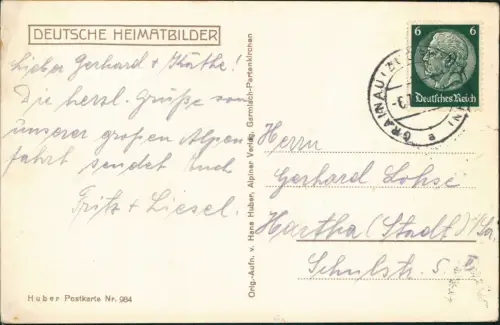 DEUTSCHE HEIMATBILDER
Lieber Gerhard + Käthe!
Die herzl. Grüße von
unserer großen Alpen
fahrt sendet Euch
Fritz + Liesel.
Huber Postkarte Nr. 984
Orig.-Aufn. v. Hans Huber, Alpiner Verlag, Garmisch-Partenkirchen
6 6
Deutsches Reich
GRAINAU
a
Herrn
Gerhard Lohse
Hartha (Stadt)
Schulstr. 5.